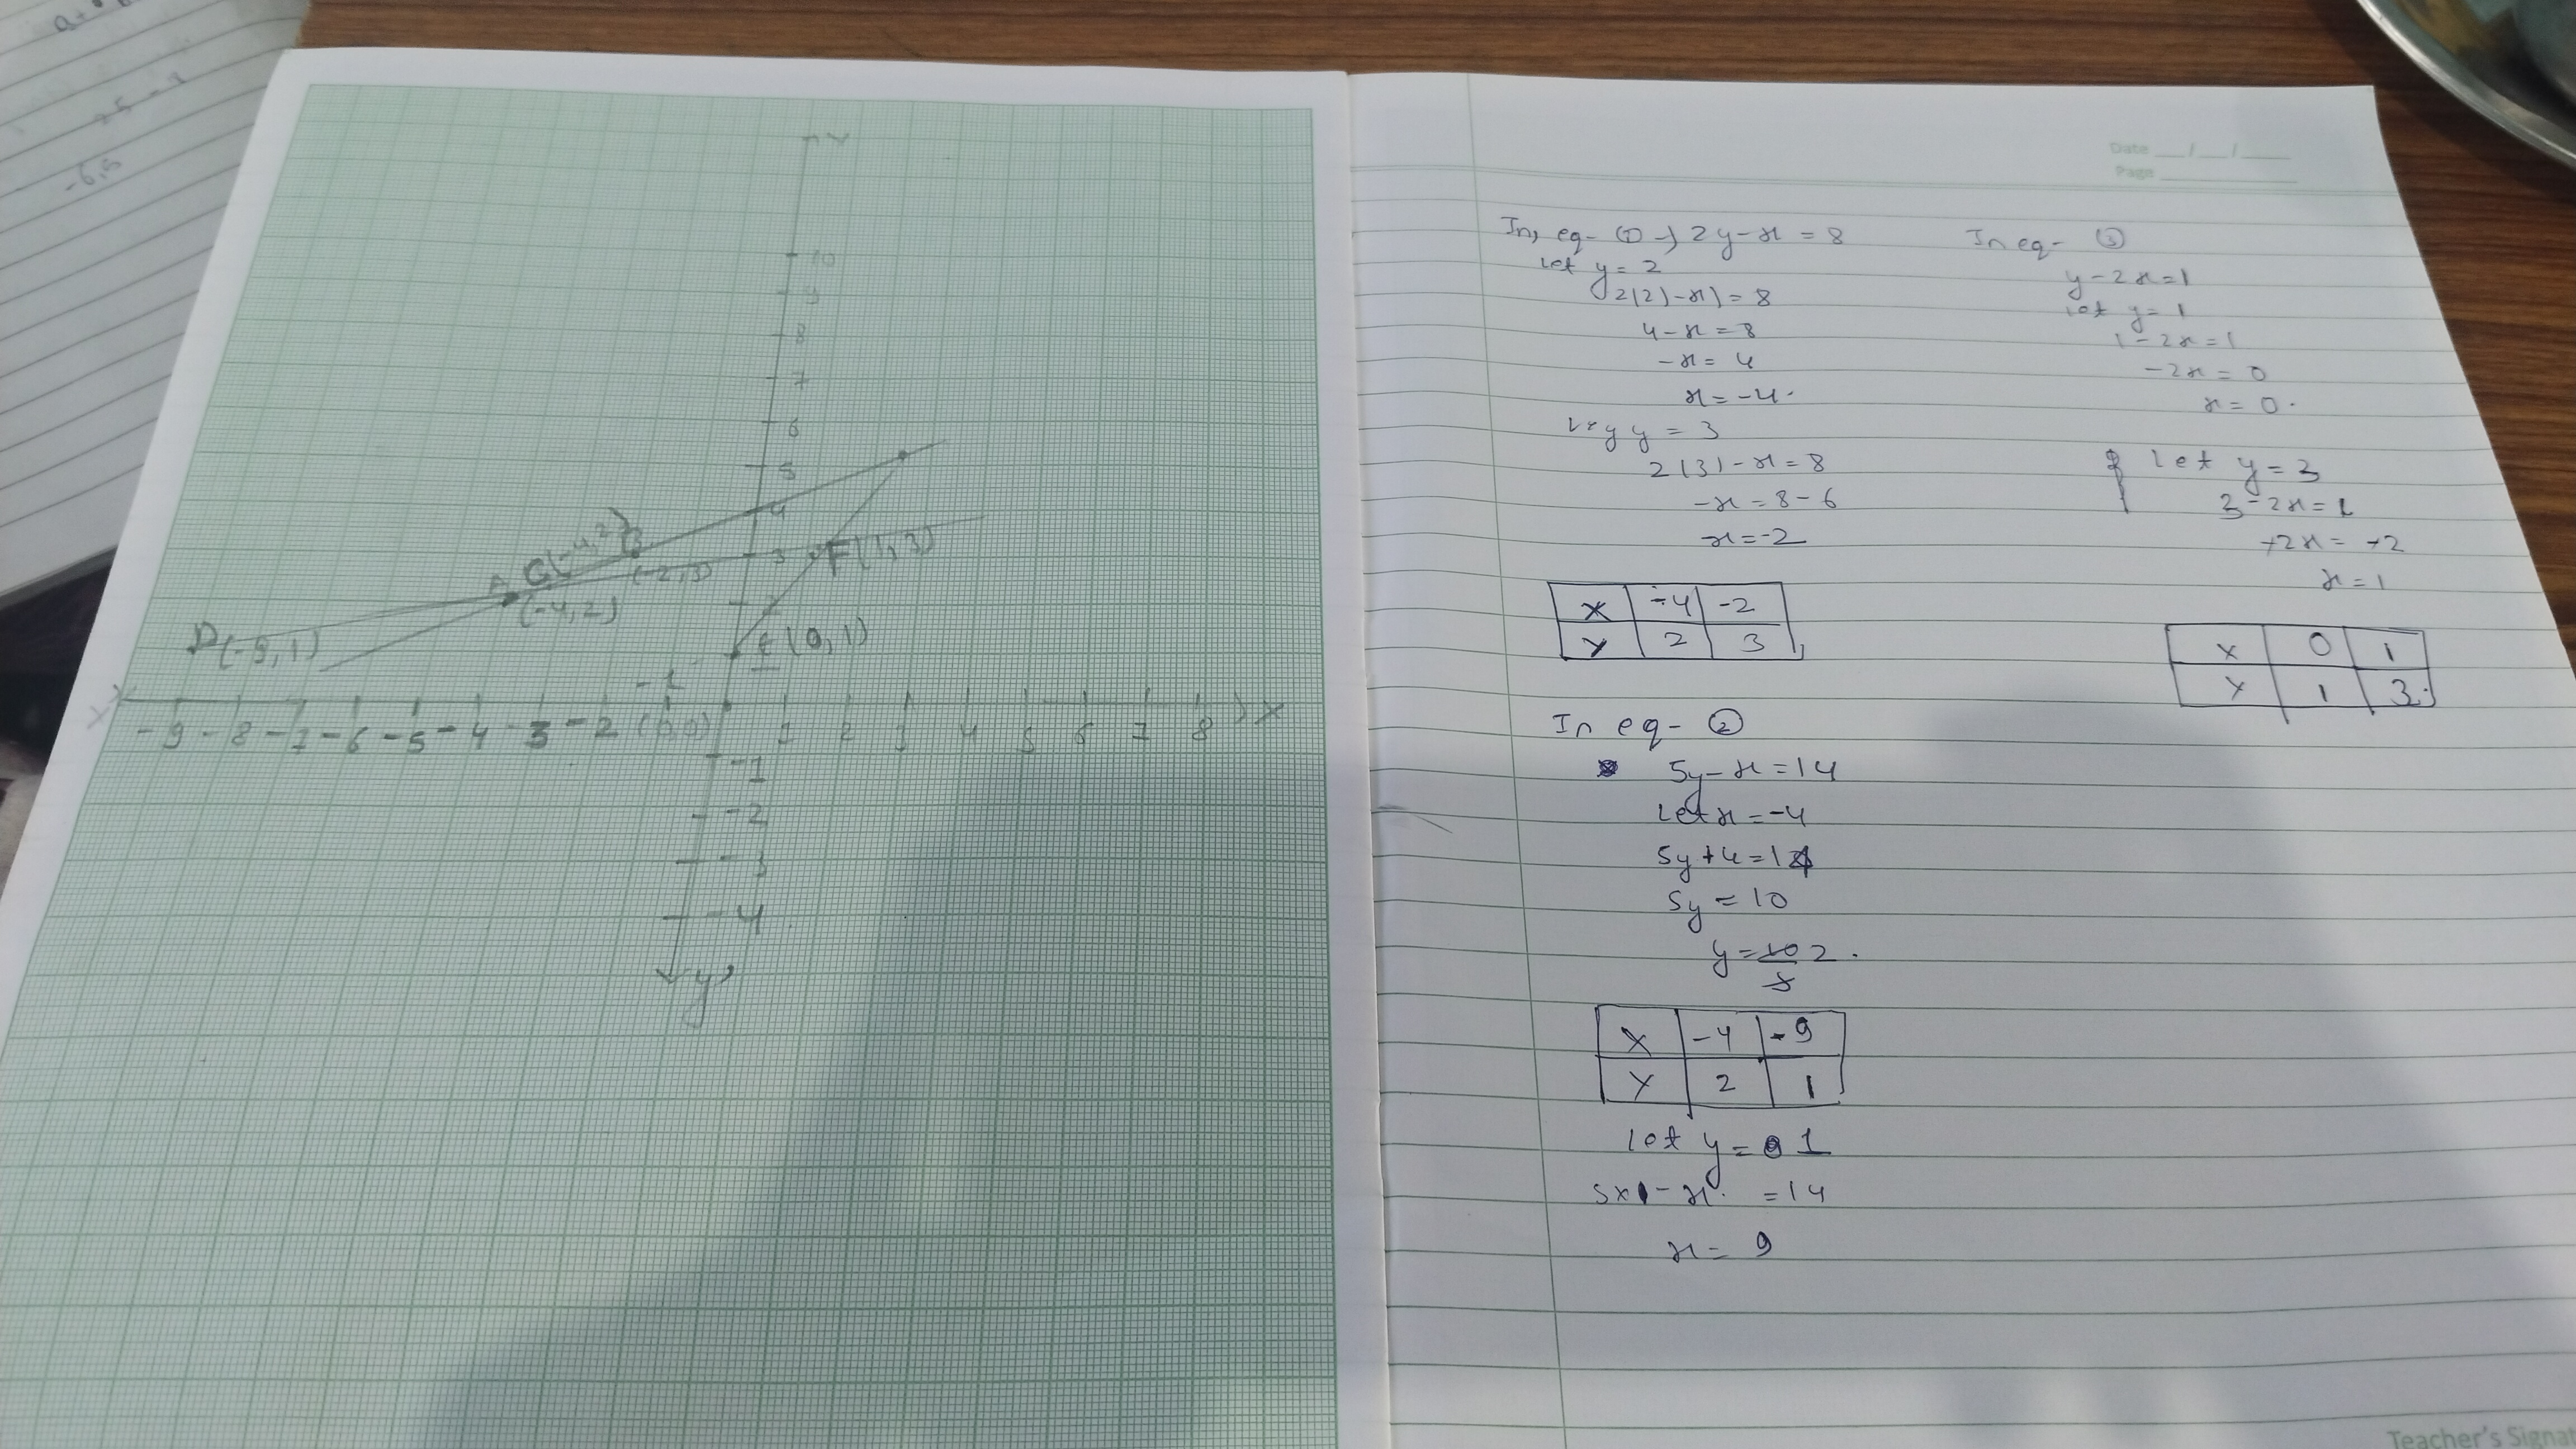 -6,5
Y
10
9
8
7
6
5
4
3
2
C(-4,2)
B
(-2,3)
F(1,3)
A
(-4,2)
D(-9,1)
E(0,1)
-1
X'
X
-9 -8 -7 -6 -5 -4 -3 -2 (0,0) 1 2 3 4 5 6 7 8
-1
-2
-3
-4
y'
Date __/__/__
Page
In, eq- ① → 2y-x = 8
let y = 2
2(2)-x) = 8
4-x = 8
-x = 4
x = -4.
y = 3
2(3)-x = 8
-x = 8-6
x = -2
X -4 -2
Y 2 3
In eq- ②
5y-x = 14
Let x = -4
5y+4 = 14
5y = 10
y = 10/5 2.
X -4 -9
Y 2 1
let y = 1
5x1-x. = 14
x = 9
In eq- ③
y-2x=1
let y = 1
1-2x=1
-2x = 0
x = 0.
let y = 3
3-2x=1
+2x = +2
x = 1
X 0 1
Y 1 3.
Teacher's Signa